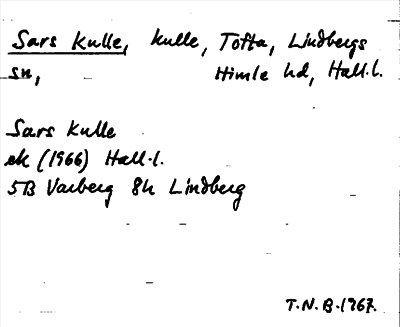 Sars Kulle, kulle, Tofta, Lindbergs
sn, Himle hd, Hall.l.
Sars Kulle
ek (1966) Hall.l.
5B Varberg 8h Lindberg
T.N.B.1967.